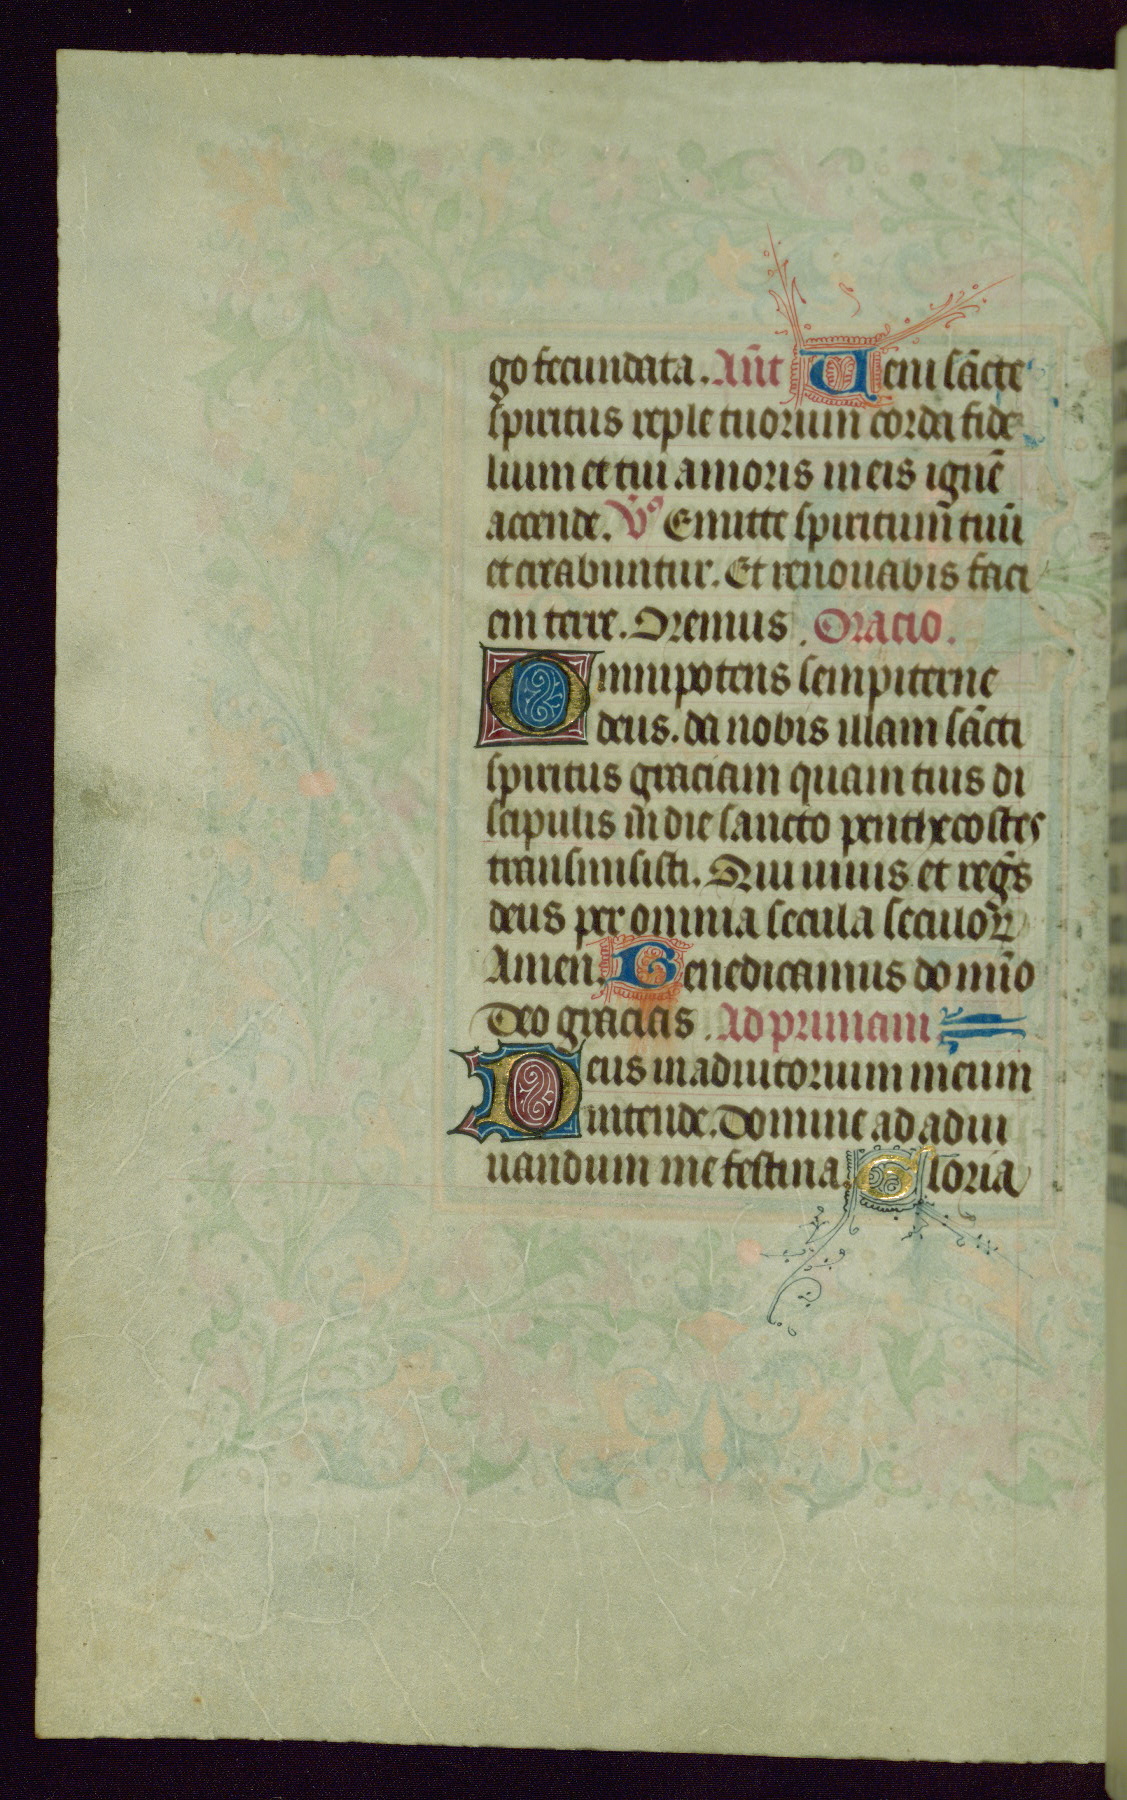 go fecundata. Añt Ueni sc̄te
spiritus reple tuorum corda fide
lium et tui amoris in eis ignē
accende. V̊ Emitte spiritum̄ tuū
et creabuntur. Et renouabis faci
em terre. Oremus. Oracio.
Omnipotens sempiterne
deus. da nobis illam sāncti
spiritus graciam quam tuis di
scipulis in die sancto penthecostes
transmisisti. Qui uiuis et reḡs
deus per omnia secula seculoꝝ
Amen. Benedicamus domīno
Deo gracias. Ad primam
Deus in adiutorium meum
intende. Domine ad adiu
uandum me festina. Gloria